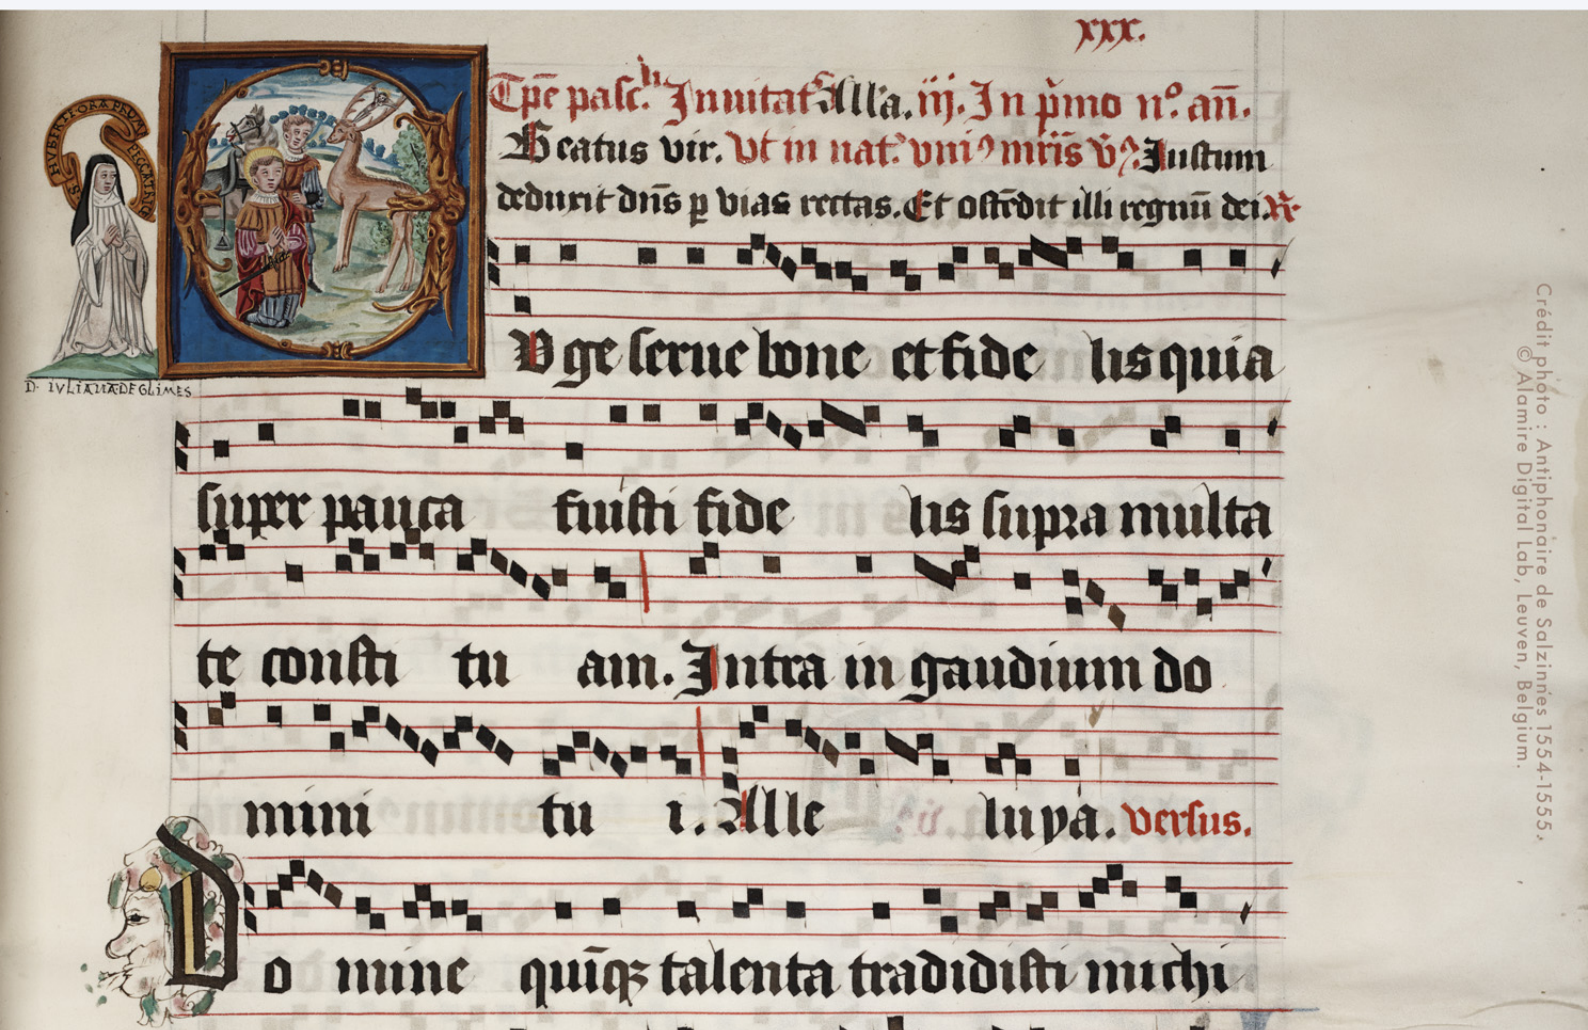 xxx.
S HVBERTE ORA PRO ME PECCATRICE
Tp̄e pasc.h Inuitat. Alla. iij. In p̄mo nº. an̄.
Beatus vir. Vt in nat. vniꝰ mr̄is v̄. Iustum
deduxit dn̄s p vias rectas. Et ostēdit illi regnū dei. R.
V ge serue bone et fide lis quia
D. IVLIANA DE GLIMES
super pauca fuisti fide lis supra multa
te consti tu am. Intra in gaudium do
mini tu i. Alle luya. versus.
D o mine quīqꝫ talenta tradidisti michi
Crédit photo : Antiphonaire de Salzinnes 1554-1555,
© Alamire Digital Lab, Leuven, Belgium.